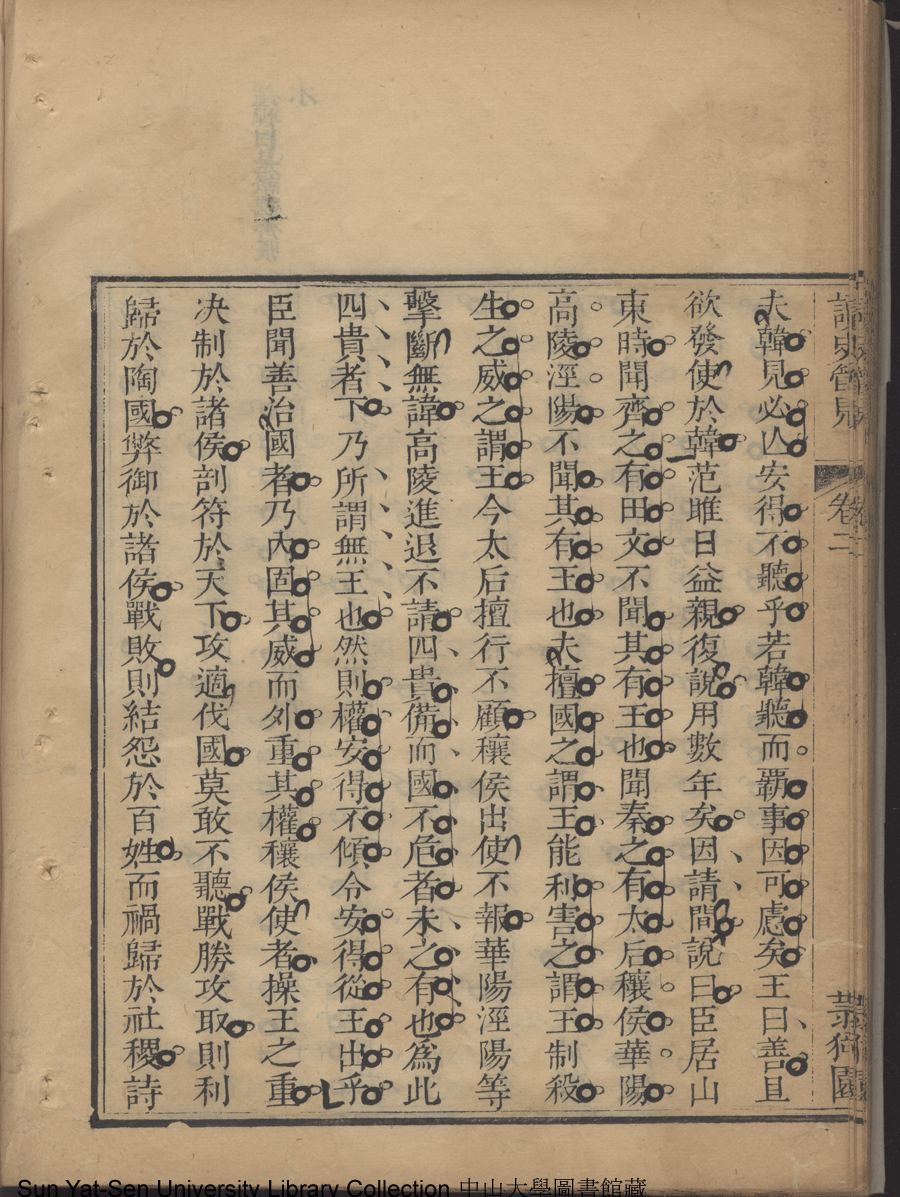 讀史管見 卷二 叢桂園
夫韓見必亡安得不聽乎若韓聽而霸事因可慮矣王曰善且
欲發使於韓范睢日益親復說用數年矣因請間說曰臣居山
東時聞齊之有田文不聞其有王也聞秦之有太后穰侯華陽
高陵涇陽不聞其有王也夫擅國之謂王能利害之謂王制殺
生之威之謂王今太后擅行不顧穰侯出使不報華陽涇陽等
擊斷無諱高陵進退不請四貴備而國不危者未之有也為此
四貴者下乃所謂無王也然則權安得不傾令安得從王出乎
臣聞善治國者乃內固其威而外重其權穰侯使者操王之重
决制於諸侯剖符於天下攻適伐國莫敢不聽戰勝攻取則利
歸於陶國弊御於諸侯戰敗則結怨於百姓而禍歸於社稷詩
Sun Yat-Sen University Library Collection 中山大學圖書館藏